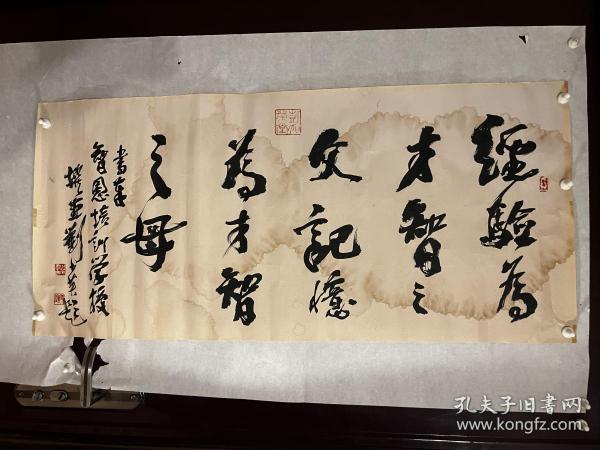 經驗為
才智之
父記憶
為才智
之母
書奉
智恩培訓学校
劉
題
孔夫子旧书网
www.kongfz.com